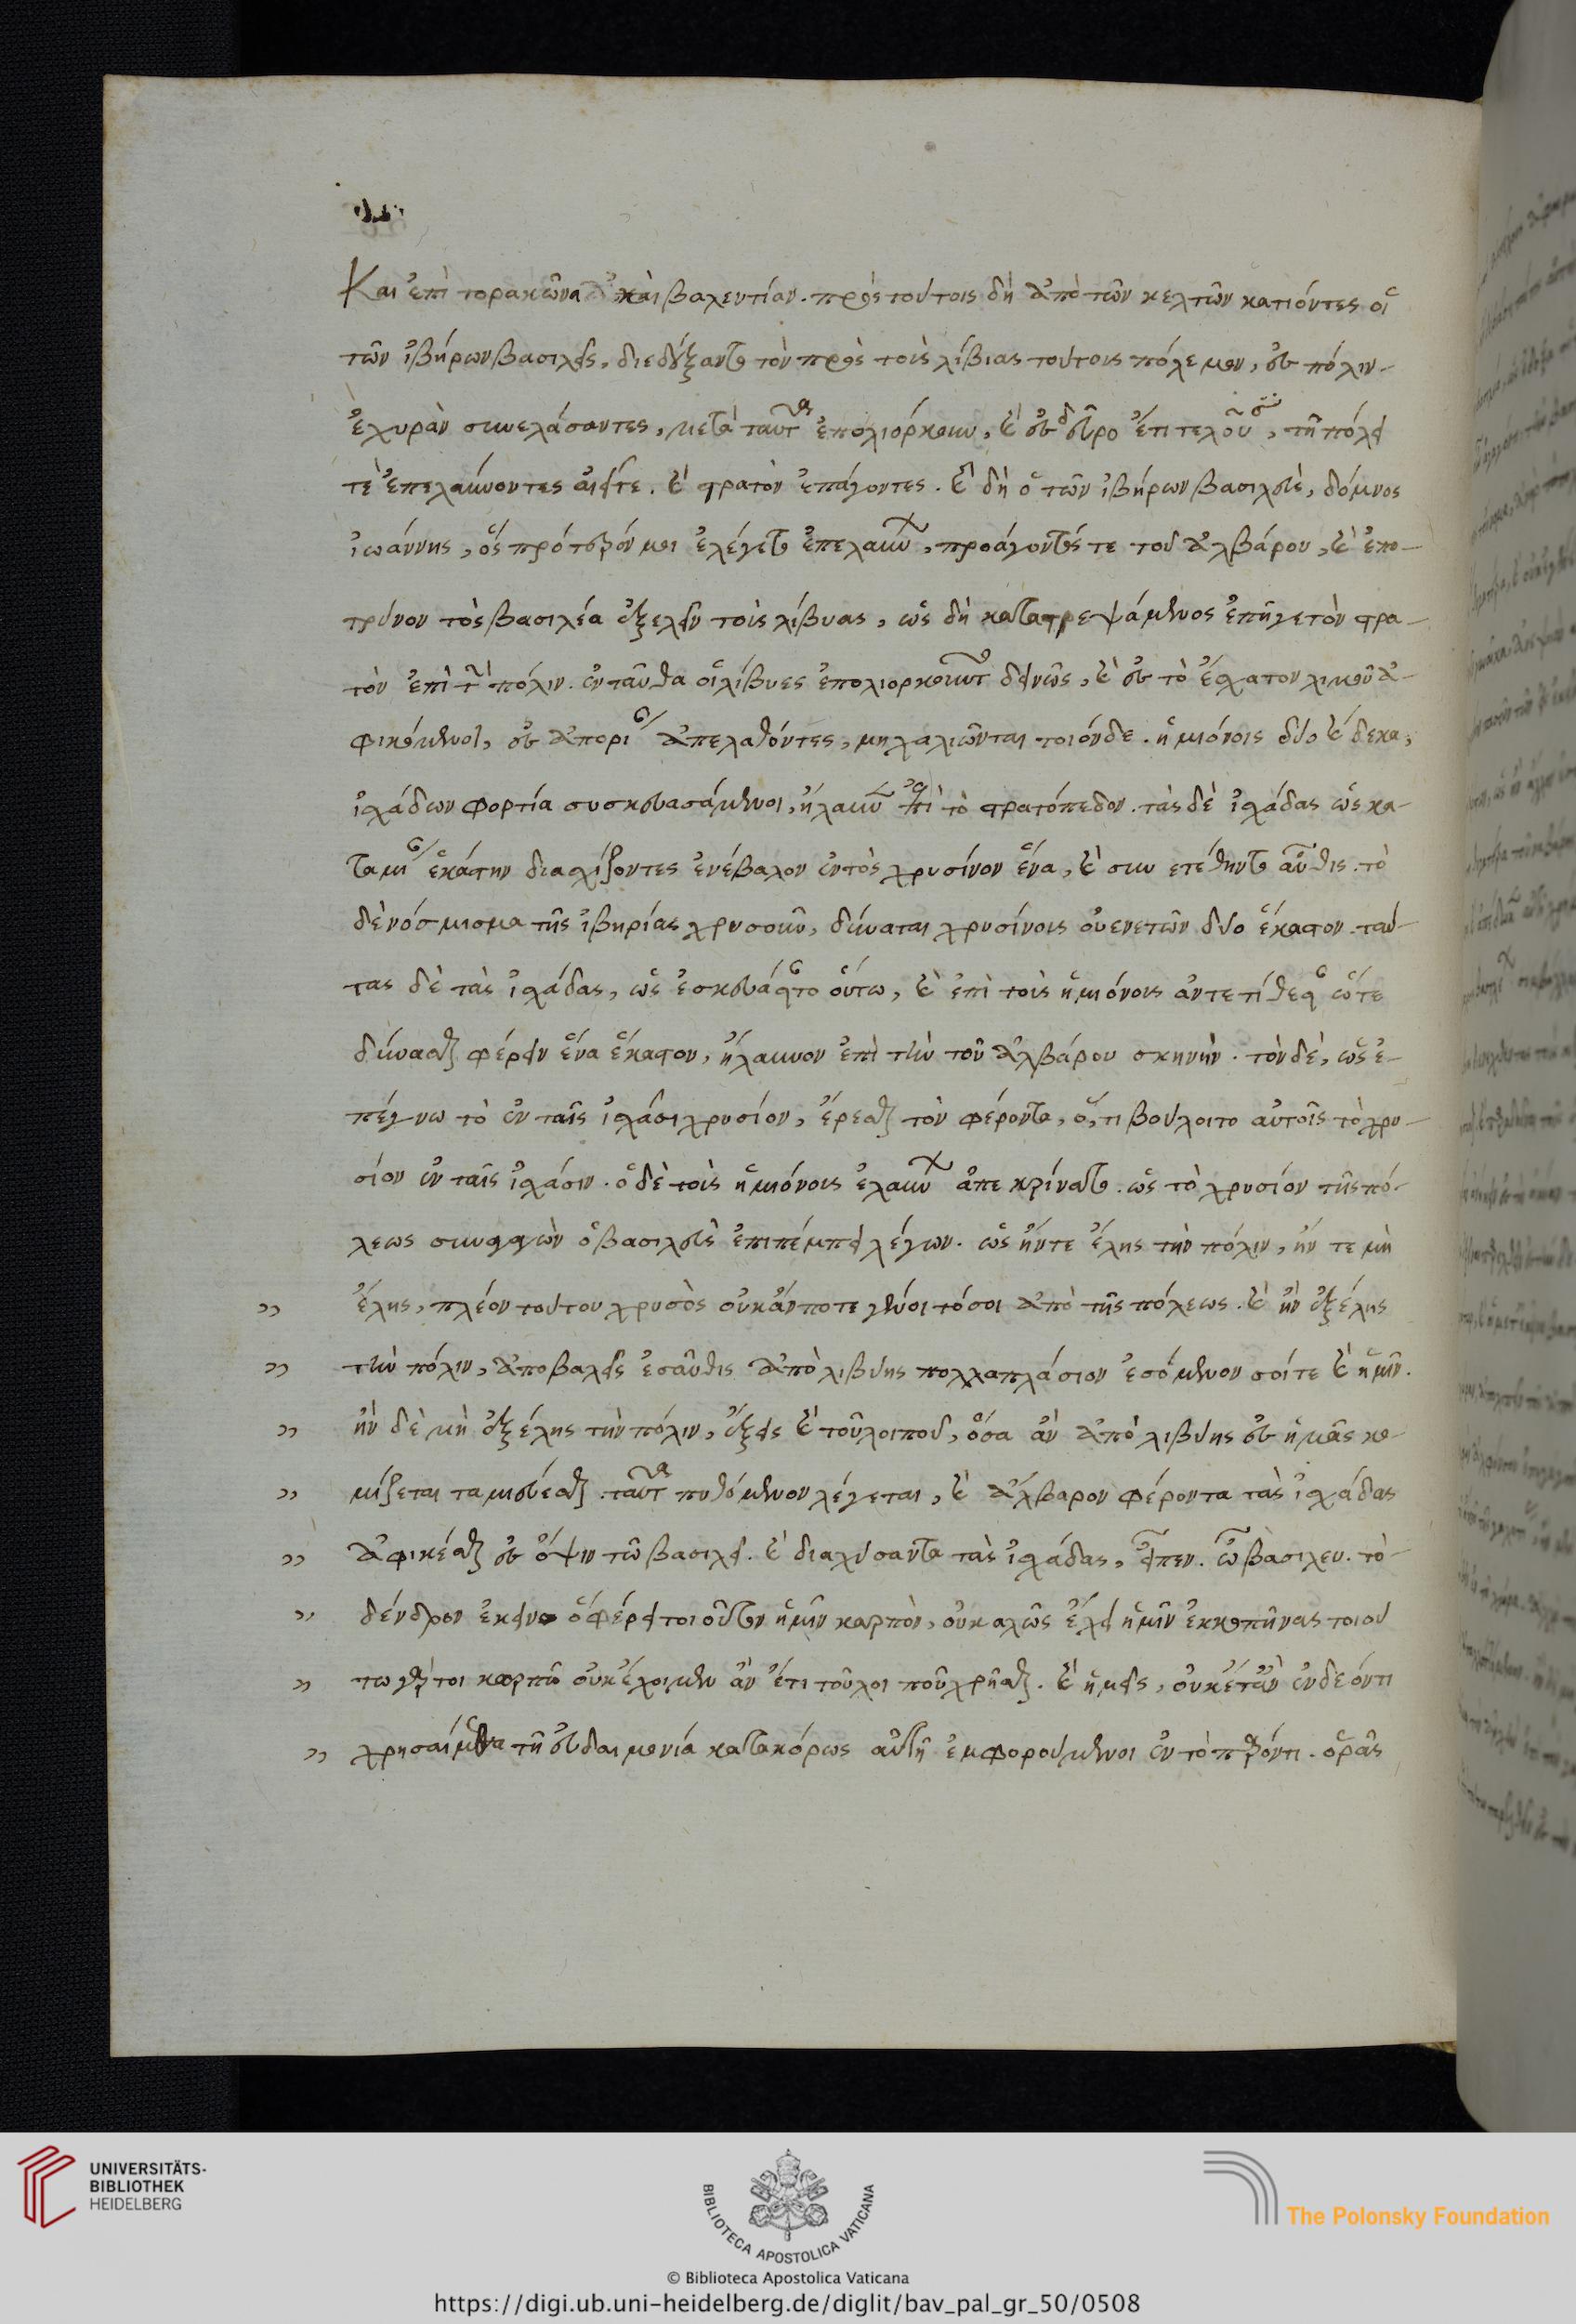 Και ἐπὶ τορακῶνα καὶ βαλεντίαν. πρὸς τούτοις δὴ ἀπὸ τῶν κελτῶν κατιόντες οἱ
τῶν ἰβήρων βασιλεῖς, διεδέξαντο τὸν πρὸς τοὺς λίβυας τούτους πόλεμον, ἐς πόλιν
ἐχυρὰν συνελάσαντες, μετὰ ταῦτα ἐπολιόρκουν, καὶ ἐς δεῦρο ἔτι τελοῦσι, τῇ πόλει
τὲ ἐπελαύνοντες ἀιεί τε. καὶ στρατὸν ἐπάγοντες. καὶ δὴ ὁ τῶν ἰβήρων βασιλεὺς, δόμνος
ἰωάννης, ὃς πρότερόν μοι ἐλέγετο ἐπελαύνων, προάγοντός τε τοῦ ἀλβάρου, καὶ ἐπο-
τρύνον τὸς βασιλέα ἐξελεῖν τοὺς λίβυας, ὡς δὴ καταστρεψάμενος ἐπῆγε τὸν στρα-
τὸν ἐπὶ τὴν πόλιν. ἐνταῦθα οἱ λίβυες ἐπολιορκοῦντο δεινῶς, καὶ ἐς τὸ ἔσχατον λιμοῦ ἀ-
φικόμενοι, ἐς ἀπορίαν ἀπελαθόντες, μηχανῶνται τοιόνδε. ἡμιόνοις δύο καὶ δεκα,
ἰσχάδων φορτία συσκευασάμενοι, ἤλαυνον ἐπὶ τὸ στρατόπεδον. τὰς δὲ ἰσχάδας ὡς κα-
τα μίαν ἑκάστην διασχίζοντες ἐνέβαλον ἐντὸς χρυσίνον ἕνα, καὶ συνετέθηντο αὖθις. τὸ
δὲ νόσμισμα τῆς ἰβηρίας χρυσοῦν, δύναται χρυσίνοις οὐενετῶν δύο ἕκαστον. ταύ-
τας δὲ τὰς ἰσχάδας, ὡς ἐσκευάσαντο οὕτω, καὶ ἐπὶ τοὺς ἡμιόνους ἀντετίθεσαν ὥστε
δύνασθαι φέρειν ἕνα ἕκαστον, ἤλαυνον ἐπὶ τὴν τοῦ ἀλβάρου σκηνὴν. τὸν δέ, ὡς ἐ-
πέγνω τὸ ἐν ταῖς ἰσχάσι χρυσίον, ἔρεσθαι τὸν φέροντα, ὅ,τι βούλοιτο αὐτοῖς τὸ χρυ-
σίον ἐν ταῖς ἰσχάσιν. ὁ δὲ τοὺς ἡμιόνους ἐλαύνων ἀπεκρίνατο. ὡς τὸ χρυσίον τῆς πό-
λεως συναγαγὼν ὁ βασιλεὺς ἐπιπέμπει λέγων. ὡς ἤν τε ἕλης τὴν πόλιν, ἤν τε μὴ
„ ἕλης, πλέον τούτου χρυσὸς οὐκ ἄν ποτε γένοι τόσοι ἀπὸ τῆς πόλεως. καὶ ἢν ἐξέλης
„ τὴν πόλιν, ἀποβαλεῖς ἐσαῦθις ἀπὸ λιβύης πολλαπλάσιον ἐσόμενον σοί τε καὶ ἡμῖν.
„ ἢν δὲ μὴ ἐξέλης τὴν πόλιν, ἕξεις καὶ τοῦ λοιποῦ, ὅσα ἂν ἀπὸ λιβύης ἐς ἡμᾶς κο-
„ μίζεται ταμιεύεσθαι. ταῦτα πυθόμενον λέγεται, καὶ ἀλβαρον φέροντα τὰς ἰσχάδας
„ ἀφικέσθαι ἐς ὄψιν τῶ βασιλεῖ. καὶ διαλύσαντα τὰς ἰσχάδας, εἶπεν. ὦ βασιλευ. τὸ
„ δένδρον ἐκεῖνο ὃ φέρει τοιοῦτον ἡμῖν καρπὸν, οὐ καλῶς ἔχει ἡμῖν ἐκκοπῆναι τοιού
„ τω γάρ τοι καρπῶ οὐκ ἔχοιμεν ἂν ἔτι τοῦ λοιποῦ χρῆσθαι. καὶ ἡμεῖς, οὐκέτ' ἂν ἐνδεόντι
„ χρησαίμεθα τῇ εὐδαιμονία κατακόρως αὐτῇ ἐμφορούμενοι ἐν τὸ παρόντι. ὁρᾶς
UNIVERSITÄTS-
BIBLIOTHEK
HEIDELBERG
BIBLIOTECA APOSTOLICA VATICANA
The Polonsky Foundation
© Biblioteca Apostolica Vaticana
https://digi.ub.uni-heidelberg.de/diglit/bav_pal_gr_50/0508